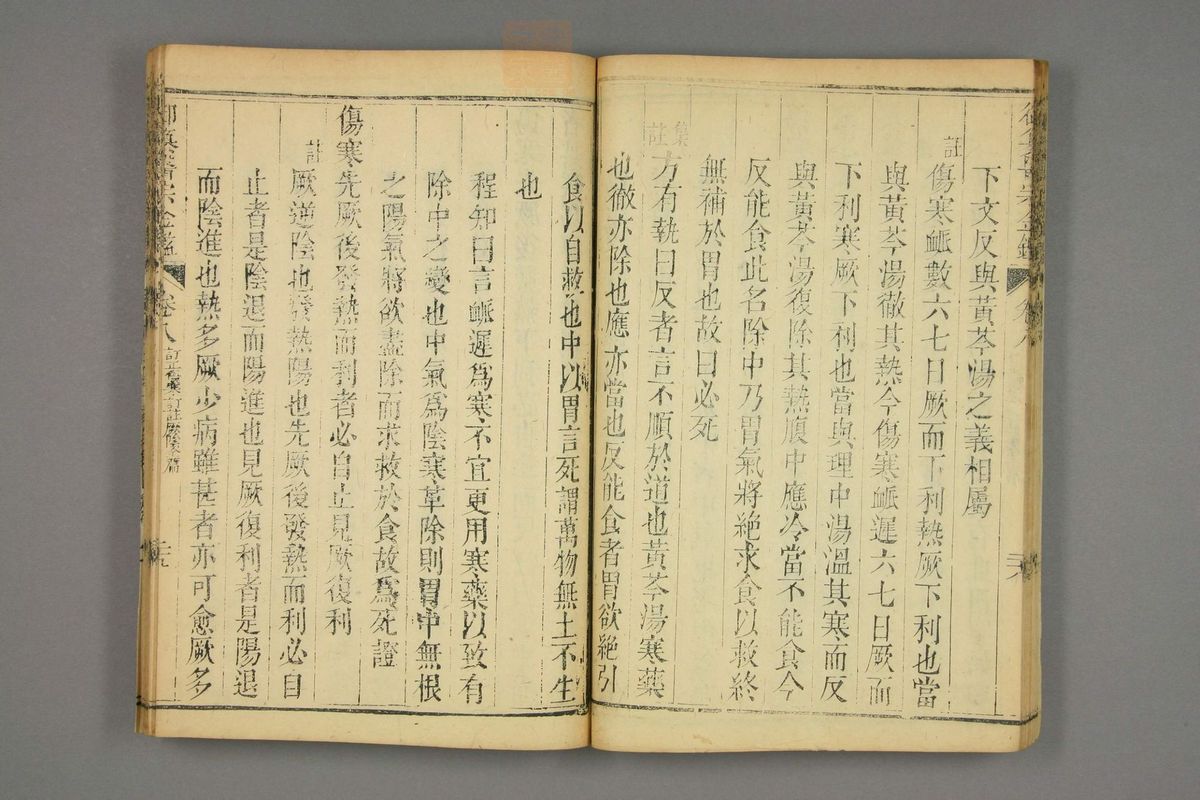 下文反與黃芩湯之義相屬
註
傷寒䘑數六七日厥而下利熱厥下利也當
與黃芩湯徹其熱今傷寒䘑遲六七日厥而
下利寒厥下利也當與理中湯溫其寒而反
與黃芩湯復除其熱腹中應冷當不能食今
反能食此名除中乃胃氣將絶求食以救終
無補於胃也故曰必死
集註
方有執曰反者言不順於道也黃芩湯寒藥
也徹亦除也應亦當也反能食者胃欲絶引
食以自救也中以胃言死謂萬物無土不生
也
程知曰言䘑遲爲寒不宜更用寒藥以致有
除中之變也中氣爲陰寒革除則胃中無根
之陽氣將欲盡除而求救於食故爲死證
傷寒先厥後發熱而利者必自止見厥復利
註
厥逆陰也發熱陽也先厥後發熱而利必自
止者是陰退而陽進也見厥復利者是陽退
而陰進也熱多厥少病雖甚者亦可愈厥多
卷八